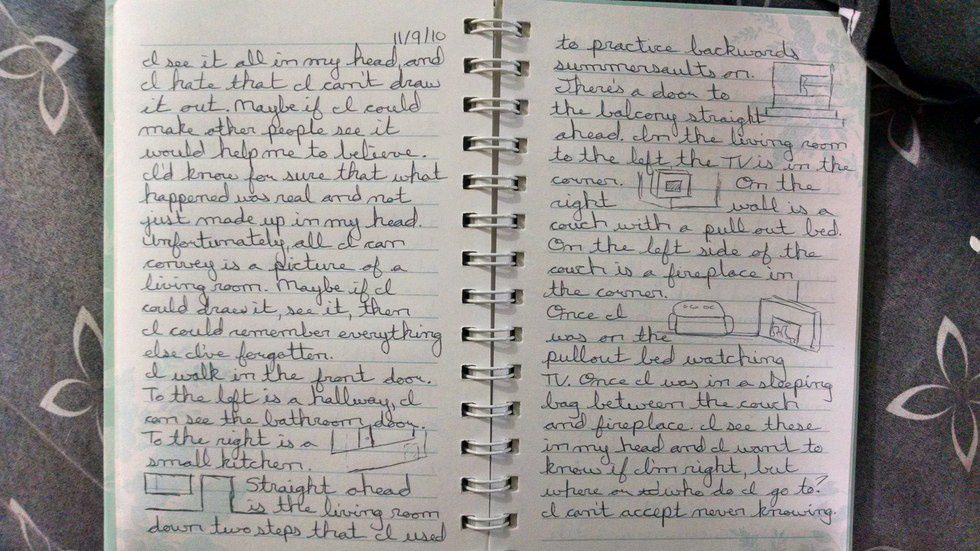 11/9/10
I see it all in my head, and
I hate that I can't draw
it out. Maybe if I could
make other people see it
would help me to believe.
I'd know for sure that what
happened was real and not
just made up in my head.
Unfortunately, all I can
convey is a picture of a
living room. Maybe if I
could draw it, see it, then
I could remember everything
else I've forgotten.
I walk in the front door.
To the left is a hallway, I
can see the bathroom door.
To the right is a
small kitchen.
Straight ahead
is the living room
down two steps that I used
to practice backwards
summersaults on.
There's a door to
the balcony straight
ahead. In the living room
to the left the TV is in the
corner. On the
right wall is a
couch with a pull out bed.
On the left side of the
couch is a fireplace in
the corner.
Once I
was on the
pullout bed watching
TV. Once I was in a sleeping
bag between the couch
and fireplace. I see these
in my head and I want to
know if I'm right, but
where or who do I go to?
I can't accept never knowing.